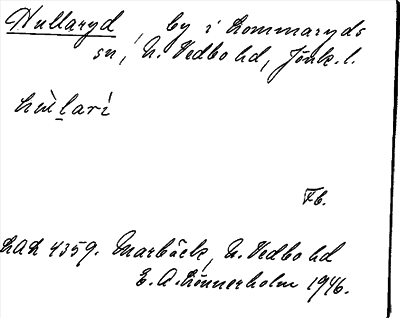 Hullaryd, by i Lommaryds
sn, N. Vedbo hd, Jönk. l.
Fb.
LAL 4359. Marbäck, N. Vedbo hd
E. A. Lönnerholm 1946.